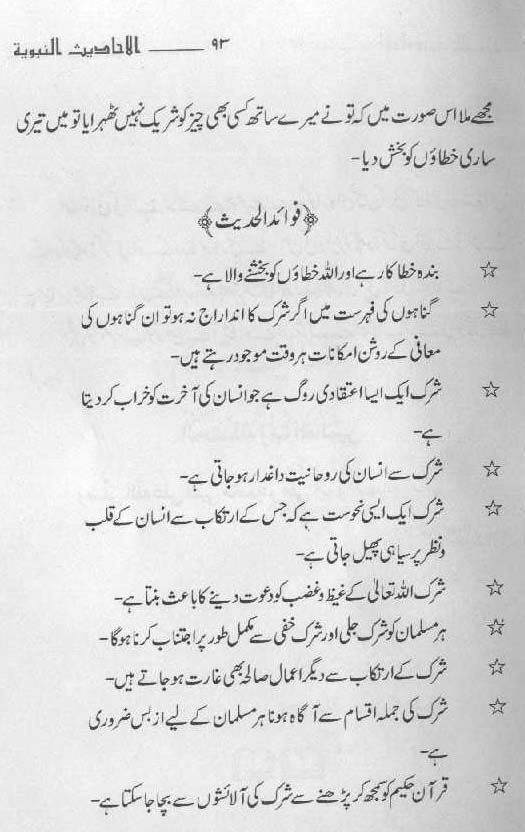 ۹۳ ــــــ الاحادیث النبویة
مجھے ملا اس صورت میں کہ تو نے میرے ساتھ کسی بھی چیز کو شریک نہیں ٹھہرایا تو میں تیری
ساری خطاؤں کو بخش دیا۔
﴿فوائد الحدیث﴾
☆ بندہ خطا کار ہے اور اللہ خطاؤں کو بخشنے والا ہے۔
☆ گناہوں کی فہرست میں اگر شرک کا اندراج نہ ہو تو ان گناہوں کی
معافی کے روشن امکانات ہر وقت موجود رہتے ہیں۔
☆ شرک ایک ایسا اعتقادی روگ ہے جو انسان کی آخرت کو خراب کر دیتا
ہے۔
☆ شرک سے انسان کی روحانیت داغدار ہو جاتی ہے۔
☆ شرک ایک ایسی نحوست ہے کہ جس کے ارتکاب سے انسان کے قلب
و نظر پر سیاہی پھیل جاتی ہے۔
☆ شرک اللہ تعالیٰ کے غیظ و غضب کو دعوت دینے کا باعث بنتا ہے۔
☆ ہر مسلمان کو شرک جلی اور شرک خفی سے مکمل طور پر اجتناب کرنا ہوگا۔
☆ شرک کے ارتکاب سے دیگر اعمال صالحہ بھی غارت ہو جاتے ہیں۔
☆ شرک کی جملہ اقسام سے آگاہ ہونا ہر مسلمان کے لیے از بس ضروری
ہے۔
☆ قرآن حکیم کو سمجھ کر پڑھنے سے شرک کی آلائشوں سے بچا جا سکتا ہے۔